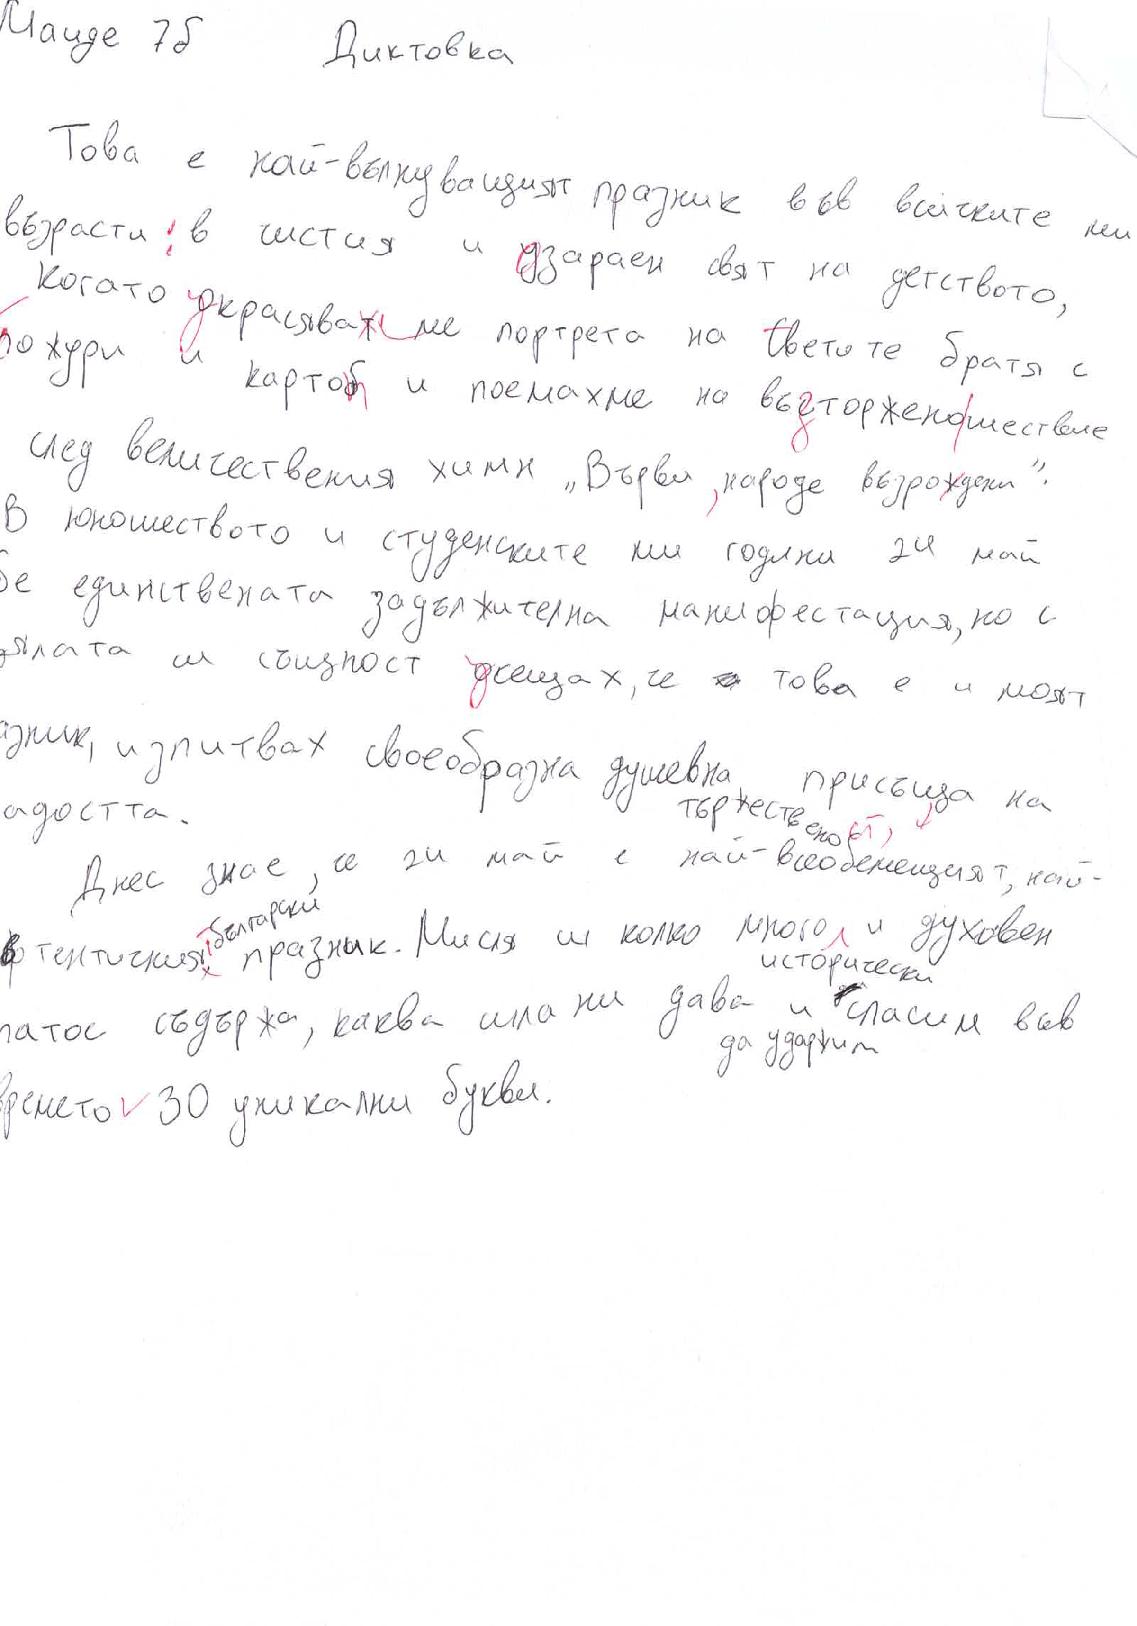 Манде 7б Диктовка
Това е най-вълнуващият празник във всичките ми
възрасти: в чистия и озарен свят на детството,
когато украсявахме портрета на светите братя с
божури и картон и поемахме на възторжено шествие
след величествения химн „Върви, народе възродени".
В юношеството и студентските ми години 24 май
бе единствената задължителна манифестация, но с
цялата си същност усещах, че това е и моят
азник, изпитвах своеобразна душевна присъща на
тържественост,
адостта.
Днес знае, че 24 май е най-всеобемещият, най-
български
тентичния празник. Мися си колко много и духовен
исторически
патос съдържа, каква сила ни дава и спасим във
да ударжим
времето 30 уникални букви.